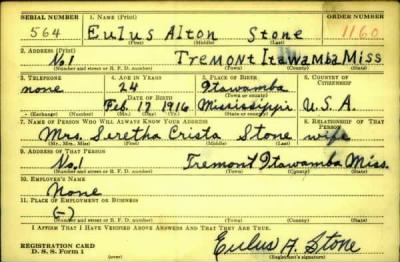 SERIAL NUMBER 1. NAME (Print) ORDER NUMBER
564 Eulus Alton Stone 1160
(First) (Middle) (Last)
2. ADDRESS (Print)
No. 1 Tremont Itawamba Miss
(Number and street or R. F. D. number) (Town) (County) (State)
3. TELEPHONE 4. AGE IN YEARS 5. PLACE OF BIRTH 6. COUNTRY OF CITIZENSHIP
none 24 Itawamba
DATE OF BIRTH (Town or county)
Feb. 17 1916 Mississippi U.S.A.
(Exchange) (Number) (Mo.) (Day) (Yr.) (State or country)
7. NAME OF PERSON WHO WILL ALWAYS KNOW YOUR ADDRESS 8. RELATIONSHIP OF THAT PERSON
Mrs. Saretha Crista Stone wife
(Mr., Mrs., Miss) (First) (Middle) (Last)
9. ADDRESS OF THAT PERSON
No. 1 Tremont Itawamba Miss.
(Number and street or R. F. D. number) (Town) (County) (State)
10. EMPLOYER'S NAME
None
11. PLACE OF EMPLOYMENT OR BUSINESS
(-)
(Number and street or R. F. D. number) (Town) (County) (State)
I AFFIRM THAT I HAVE VERIFIED ABOVE ANSWERS AND THAT THEY ARE TRUE.
REGISTRATION CARD
D. S. S. Form 1 Eulus A. Stone
(Registrant's signature)